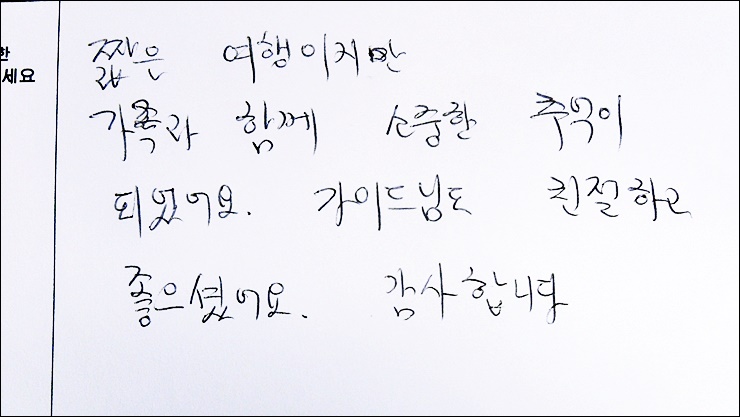 한
세요
짧은 여행이지만
가족과 함께 소중한 추억이
되었어요. 가이드님도 친절하고
좋으셨어요. 감사합니다